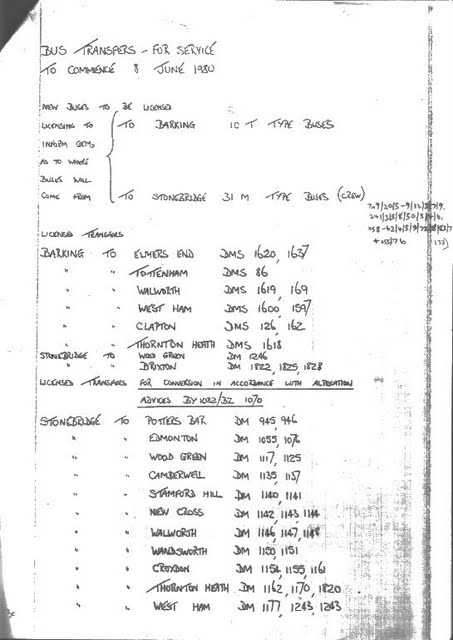 BUS TRANSFERS - FOR SERVICE
TO COMMENCE 8 JUNE 1980
NEW BUSES TO BE LICENSED
LICENSING TO
INFORM OEMS
AS TO WHERE
BUSES WILL
COME FROM
TO BARKING 10 T TYPE BUSES
TO STONEBRIDGE 31 M TYPE BUSES (CREW)
LICENSED TRANSFERS
BARKING TO ELMERS END DMS 1620, 1637
" " TOTTENHAM DMS 86
" " WALWORTH DMS 1619, 169
" " WEST HAM DMS 1600, 1597
" " CLAPTON DMS 126, 162
" " THORNTON HEATH DMS 1618
STONEBRIDGE TO WOOD GREEN DM 1246
" " BRIXTON DM 1822, 1825, 1828
LICENSED TRANSFERS FOR CONVERSION IN ACCORDANCE WITH ALTERATION
ADVICES BY 1022/BZ 1070
STONEBRIDGE TO POTTERS BAR DM 945, 946
" " EDMONTON DM 1055, 1076
" " WOOD GREEN DM 1117, 1125
" " CAMBERWELL DM 1135, 1137
" " STAMFORD HILL DM 1140, 1141
" " NEW CROSS DM 1142, 1143, 1144
" " WALWORTH DM 1146, 1147, 1148
" " WANDSWORTH DM 1150, 1151
" " CROYDON DM 1154, 1155, 1161
" " THORNTON HEATH DM 1162, 1170, 1820
" " WEST HAM DM 1177, 1243, 1243